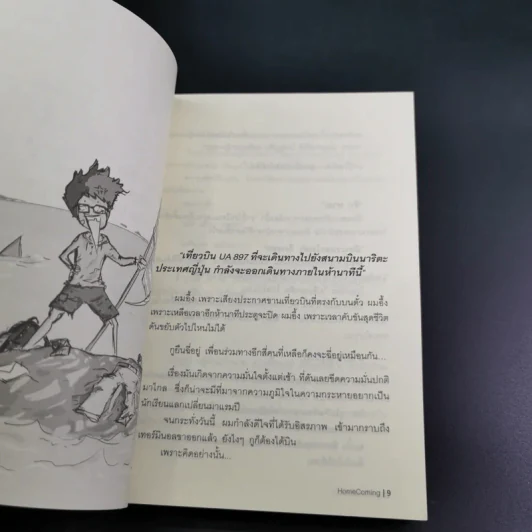 "เที่ยวบิน UA 897 ที่จะเดินทางไปยังสนามบินนาริตะ
ประเทศญี่ปุ่น กำลังจะออกเดินทางภายในห้านาทีนี้"
ผมอึ้ง เพราะเสียงประกาศขานเที่ยวบินที่ตรงกับบนตั๋ว ผมอึ้ง
เพราะเหลือเวลาอีกห้านาทีประตูจะปิด ผมอึ้ง เพราะเวลาคับขันสุดชีวิต
ดันขยับตัวไปไหนไม่ได้
กูยืนฉี่อยู่ เพื่อนร่วมทางอีกสี่คนที่เหลือก็คงจะฉี่อยู่เหมือนกัน...
เรื่องมันเกิดจากความมั่นใจตั้งแต่เช้า ที่ดันเลยขีดความมั่นปกติ
มาไกล ซึ่งก็น่าจะมีที่มาจากความภูมิใจในความกระหายอยากเป็น
นักเรียนแลกเปลี่ยนมาแรมปี
จนกระทั่งวันนี้ ผมกำลังดีใจที่ได้รับอิสรภาพ เข้ามากราบถึง
เทอร์มินอลขาออกแล้ว ยังไงๆ กูก็ต้องได้บิน
เพราะคิดอย่างนั้น...
HomeComing | 9